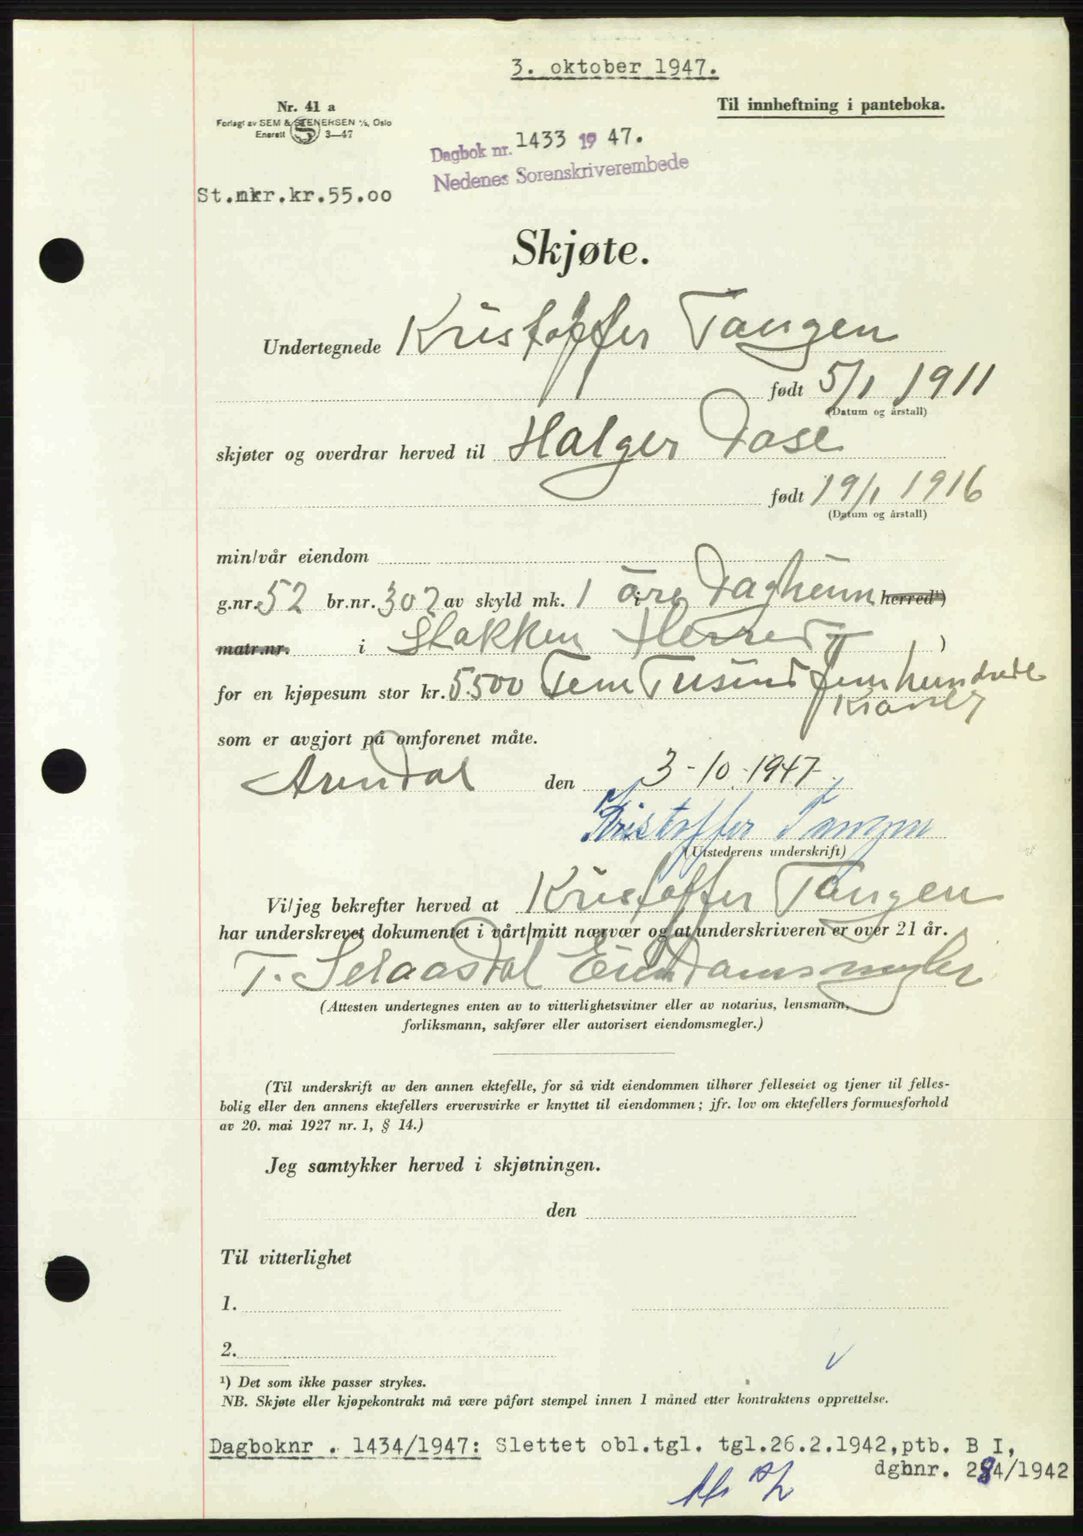 3. oktober 1947.
Til innheftning i panteboka.
Nr. 41 a
Forlagt av SEM & STENERSEN A/S, Oslo
Enerett S 3—47
Dagbok nr. 1433 1947.
Nedenes Sorenskriverembede
St.mkr.kr.55.00
Skjøte.
Undertegnede Kristoffer Tangen
født 5/1 1911
(Datum og årstall)
skjøter og overdrar herved til Holger Dose
født 19/1 1916
(Datum og årstall)
min/vår eiendom
g.nr. 52 br.nr. 302 av skyld mk. 1 øre i Dagheim herred¹)
matr.nr. i Stokken Herred )
for en kjøpesum stor kr. 5.500 Fem Tusind fem hundrede
Kroner
som er avgjort på omforenet måte.
Arendal den 3-10.1947.
Kristoffer Tangen
(Utstederens underskrift)
Vi/jeg bekrefter herved at Kristoffer Tangen
har underskrevet dokumentet i vårt/mitt nærvær og at underskriveren er over 21 år.
T. Selaasdal Eiendomsmegler
(Attesten undertegnes enten av to vitterlighetsvitner eller av notarius, lensmann,
forliksmann, sakfører eller autorisert eiendomsmegler.)
(Til underskrift av den annen ektefelle, for så vidt eiendommen tilhører felleseiet og tjener til felles-
bolig eller den annens ektefellers ervervsvirke er knyttet til eiendommen; jfr. lov om ektefellers formuesforhold
av 20. mai 1927 nr. 1, § 14.)
Jeg samtykker herved i skjøtningen.
den
Til vitterlighet
1.
2.
¹) Det som ikke passer strykes.
NB. Skjøte eller kjøpekontrakt må være påført stempel innen 1 måned etter kontraktens opprettelse.
Dagboknr. 1434/1947: Slettet obl.tgl. tgl.26.2.1942,ptb. B I,
dgbnr. 284/1942